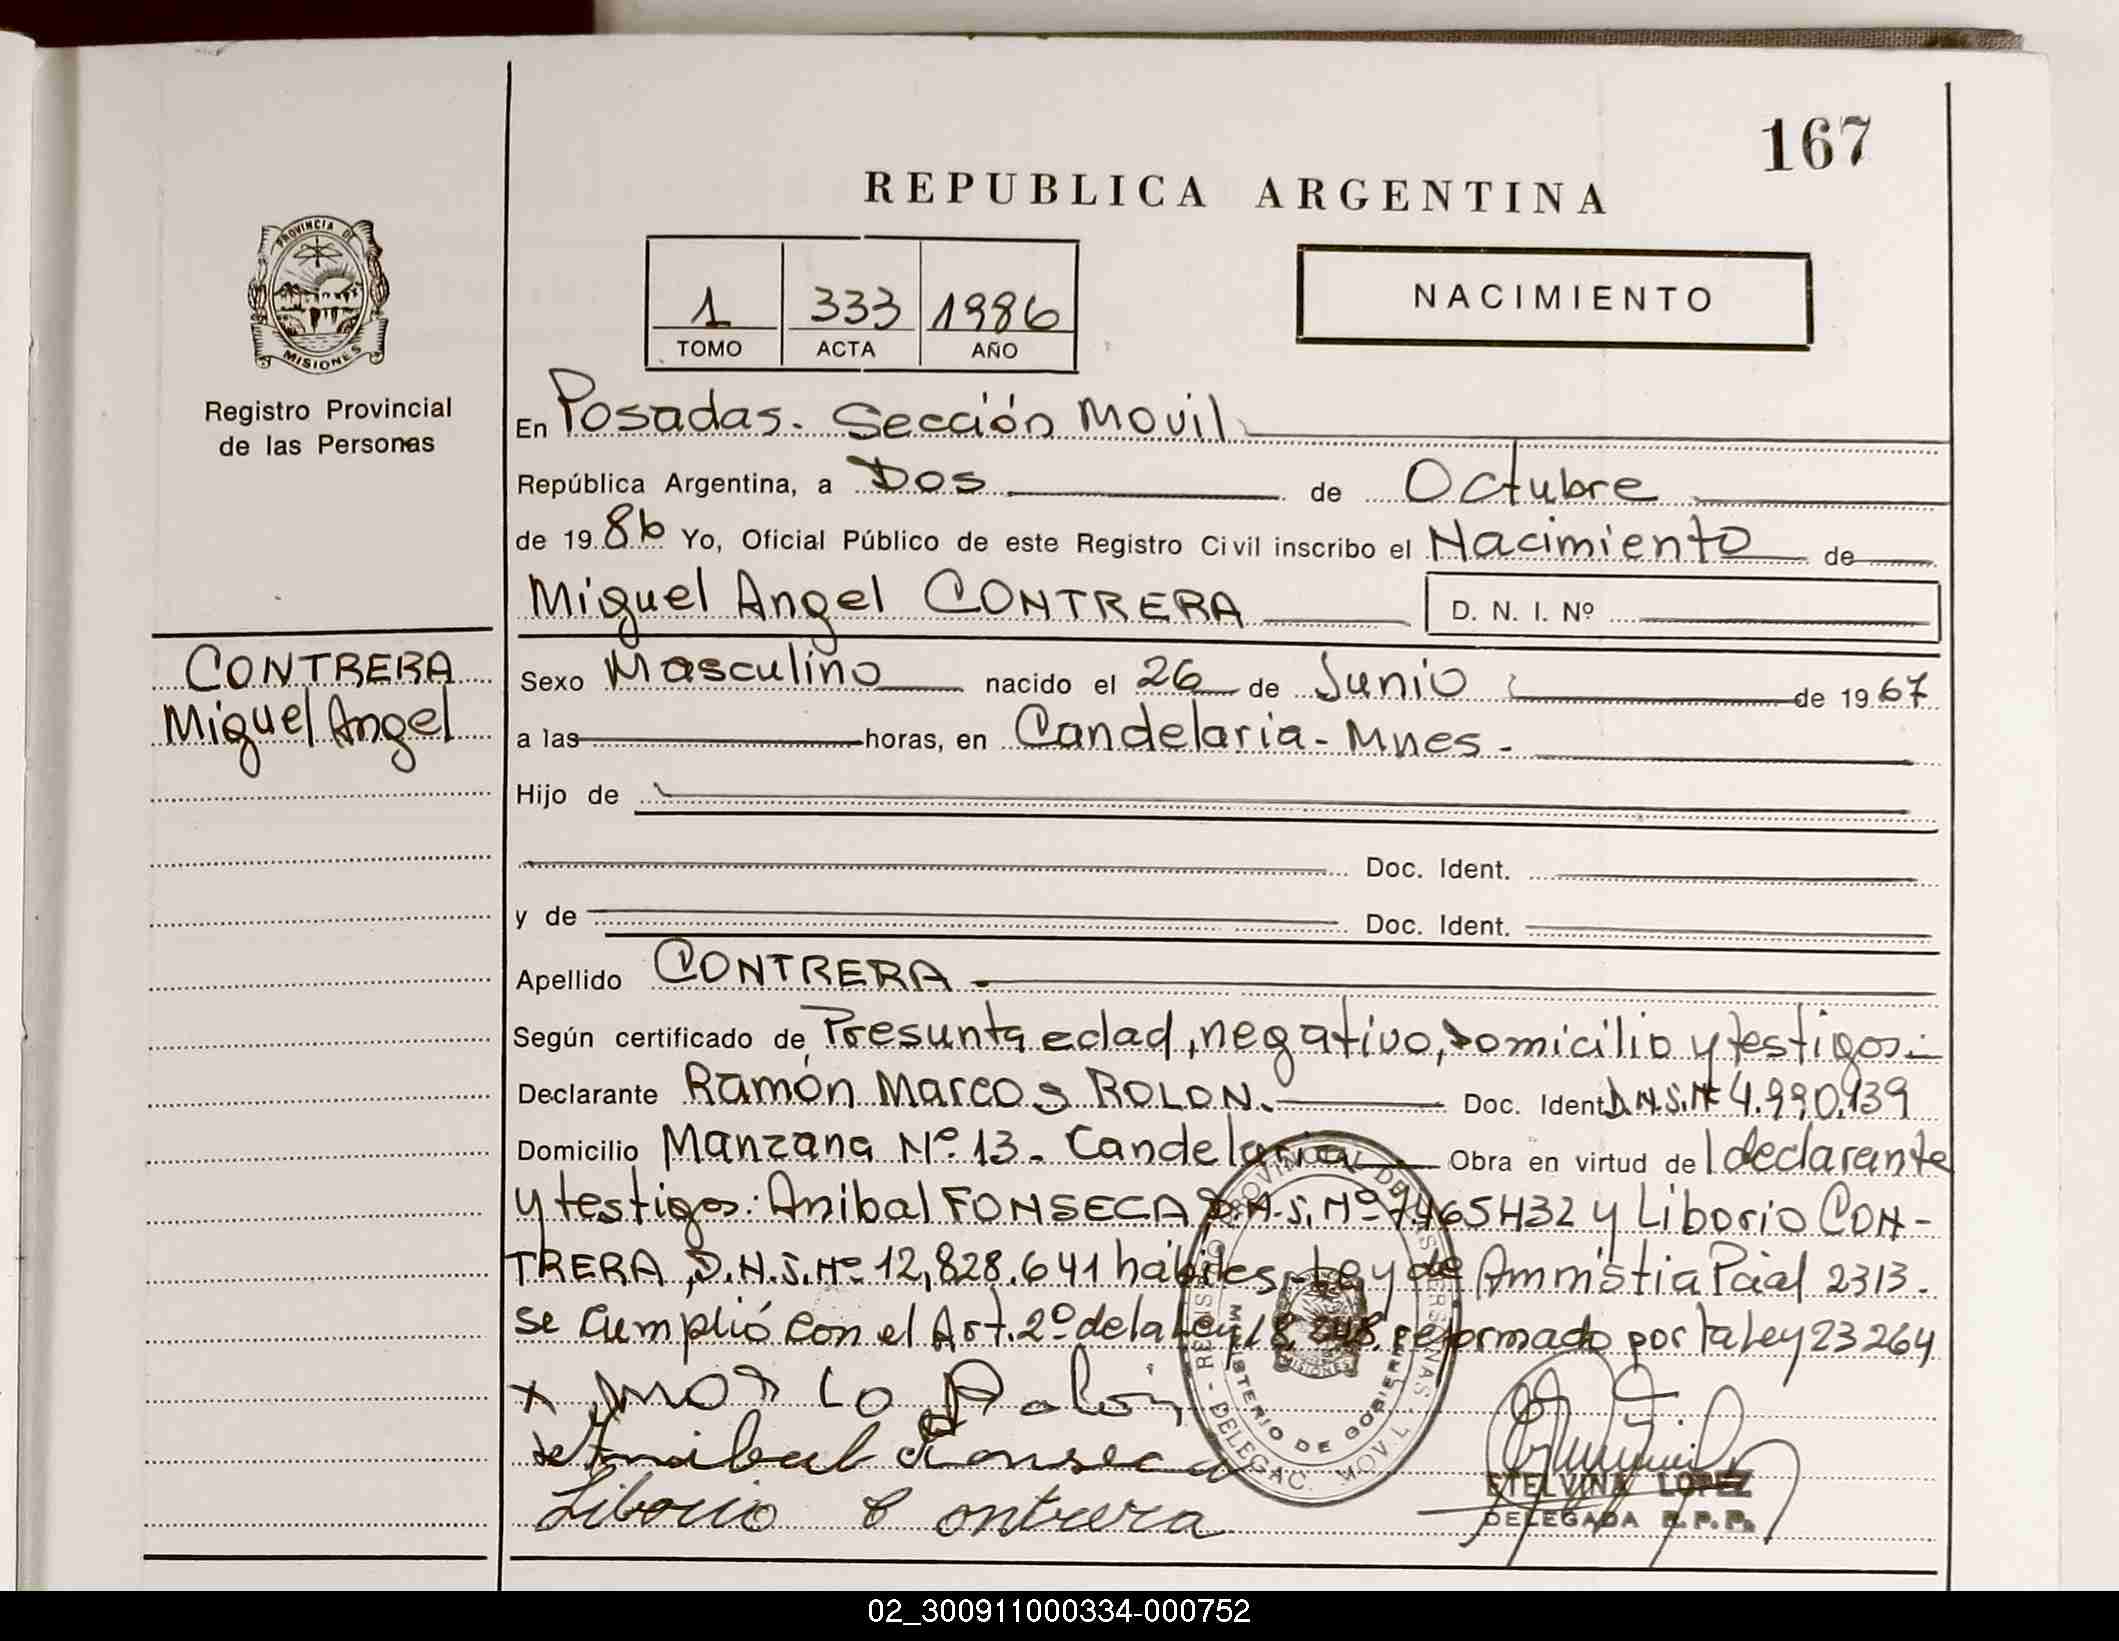 167
REPUBLICA ARGENTINA
PROVINCIA DE
MISIONES
1 333 1986
TOMO ACTA AÑO
NACIMIENTO
Registro Provincial
de las Personas
En Posadas. Sección Movil
República Argentina, a Dos de Octubre
de 1986 Yo, Oficial Público de este Registro Civil inscribo el Nacimiento de
Miguel Angel CONTRERA D. N. I. Nº
CONTRERA
Miguel Angel
Sexo Masculino nacido el 26 de Junio de 1967
a las horas, en Candelaria - Mnes -
Hijo de
Doc. Ident.
y de Doc. Ident.
Apellido CONTRERA
Según certificado de Presunta edad, negativo, Domicilio y testigos.-
Declarante Ramón Marcos ROLON. Doc. Ident. D.N.S. Nº 4.990.939
Domicilio Manzana Nº 13. Candelaria Obra en virtud de l declarante
y testigos: Anibal FONSECA D.N.S. Nº 7.465432 y Liborio CON-
TRERA, D.N.S. Nº 12,828.641 hábiles - Ley de Amnistia Pcial 2313.
se cumplió con el Art. 2º de la Ley 18.248, reformado por la Ley 23264
Anibal Fonseca
Liborio Contrera
REGISTRO PROVINCIAL DE LAS PERSONAS - DELEGAC. MOVIL
MINISTERIO DE GOBIERNO
MISIONES
ETELVINA LOPEZ
DELEGADA R.P.P.
02_300911000334-000752